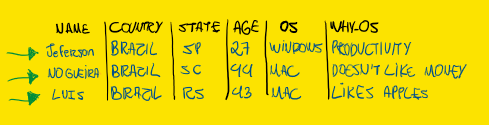 NAME COUNTRY STATE AGE OS WHY-OS
Jeferson BRAZIL SP 27 WINDOWS PRODUCTIVITY
NOGUEIRA BRAZIL SC 44 MAC DOESN'T LIKE MONEY
LUIS BRAZIL RS 43 MAC LIKES APPLES